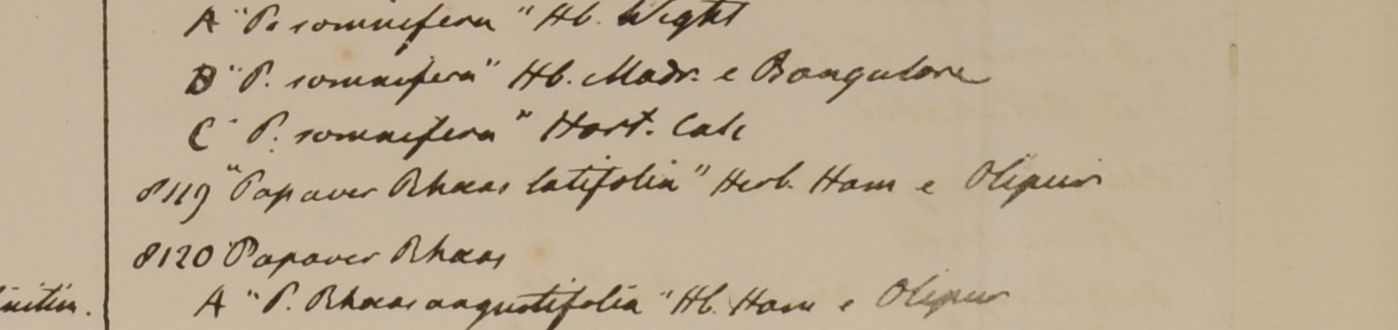 A "P. somnifera" Hb. Wight
B "P. somnifera" Hb. Madr. e Bangulore
C "P. somnifera" Hort. Calc
8119 "Papaver Rhaeas latifolia" Herb. Ham e Olipur
8120 Papaver Rhaeas
A "P. Rhaeas angustifolia" Hb. Ham e Olipur